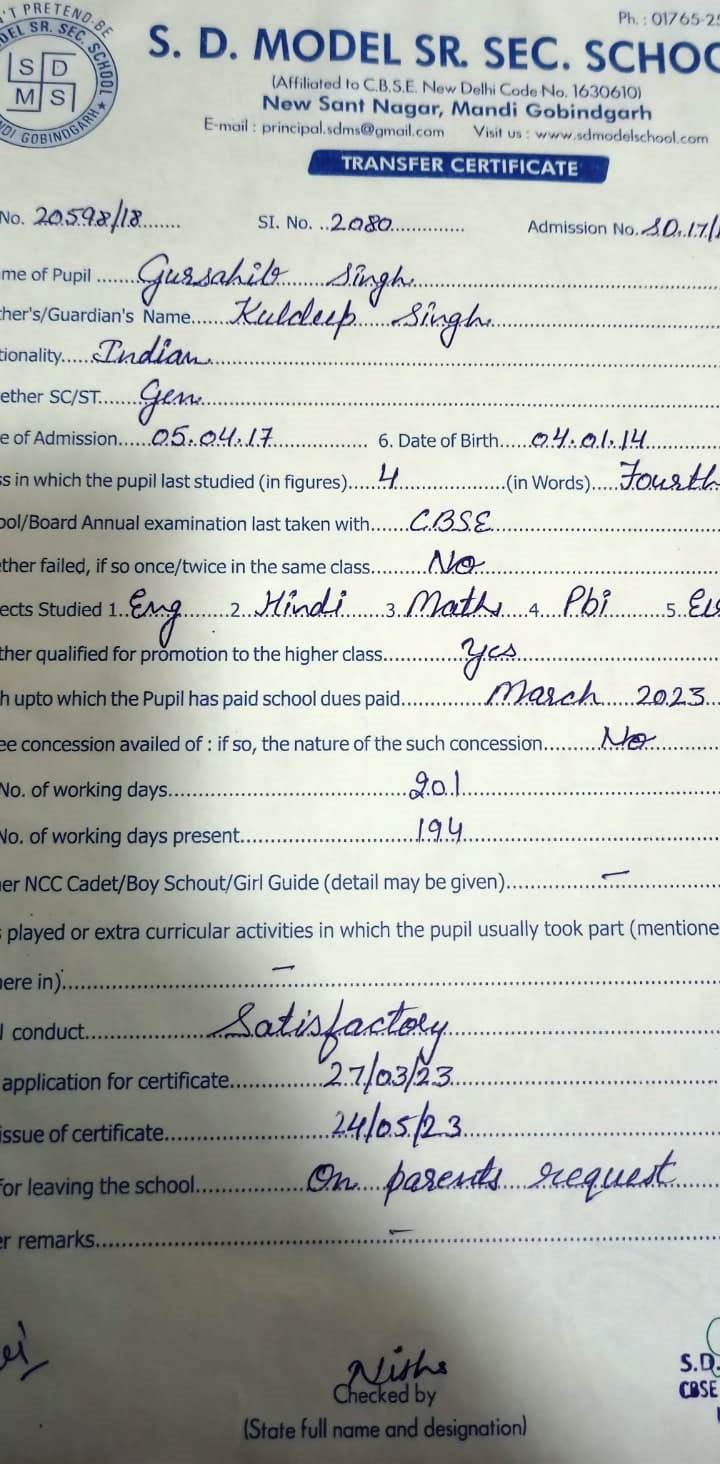 N'T PRETEND-BE
DEL SR. SEC. SCHOOL
S D
M S
DI GOBINDGARH ★
Ph. : 01765-25
S. D. MODEL SR. SEC. SCHOO
(Affiliated to C.B.S.E. New Delhi Code No. 1630610)
New Sant Nagar, Mandi Gobindgarh
E-mail : principal.sdms@gmail.com Visit us : www.sdmodelschool.com
TRANSFER CERTIFICATE
No. 20598/18 SI. No. 2080 Admission No. SD.17/
me of Pupil Gursahib Singh
ther's/Guardian's Name Kuldeep Singh
tionality Indian
ether SC/ST Gen
e of Admission 05.04.17 6. Date of Birth 04.01.14
ss in which the pupil last studied (in figures) 4 (in Words) Fourth
ool/Board Annual examination last taken with CBSE
ther failed, if so once/twice in the same class No
ects Studied 1. Eng 2. Hindi 3. Maths 4. Pbi 5.
ther qualified for promotion to the higher class yes
h upto which the Pupil has paid school dues paid March 2023
ee concession availed of : if so, the nature of the such concession No
No. of working days 201
No. of working days present 194
er NCC Cadet/Boy Schout/Girl Guide (detail may be given) —
s played or extra curricular activities in which the pupil usually took part (mentione
ere in) —
l conduct Satisfactory
application for certificate 27/03/23
issue of certificate 24/05/23
for leaving the school On parents request
er remarks —
Nisha
Checked by
(State full name and designation)
S.D.
CBSE